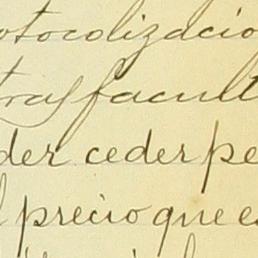 otocolizacio
tras facult
der ceder pe
l precio que es